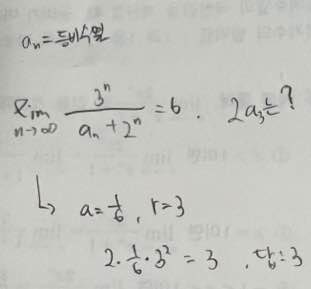 aₙ = 등비수열
lim n→∞ 3ⁿ / (aₙ + 2ⁿ) = 6 . 2a₃는?
↳ a = 1/6 , r = 3
2 · 1/6 · 3² = 3 , 답 : 3